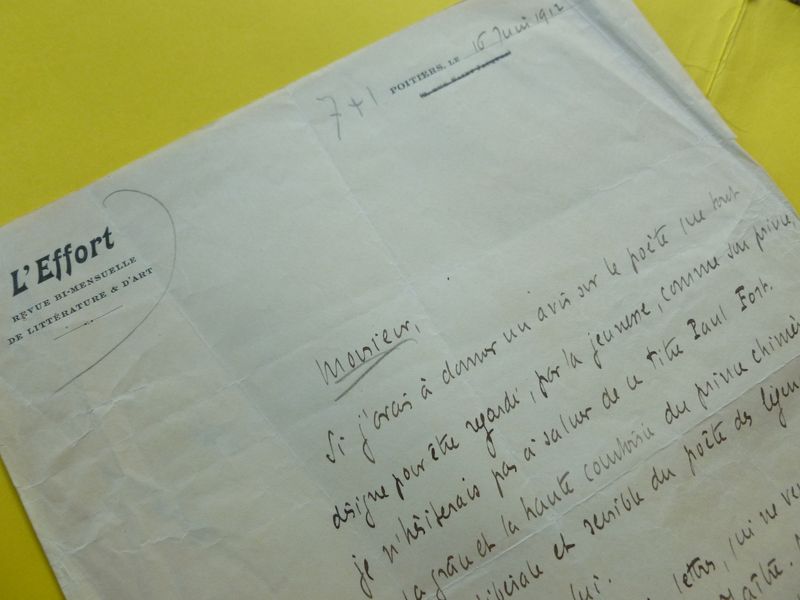 POITIERS, LE 16 Juin 1912
7+1
L'Effort
REVUE BI-MENSUELLE
DE LITTÉRATURE & D'ART
Monsieur,
Si j'avais à donner un avis sur le poète que tout
désigne pour être regardé, par la jeunesse, comme son prince,
je n'hésiterais pas à saluer de ce titre Paul Fort.
la grâce et la haute courtoisie du prince chimé
libérale et sensible du poète des légen
lui.
lettres, qui ne ve
Maître.